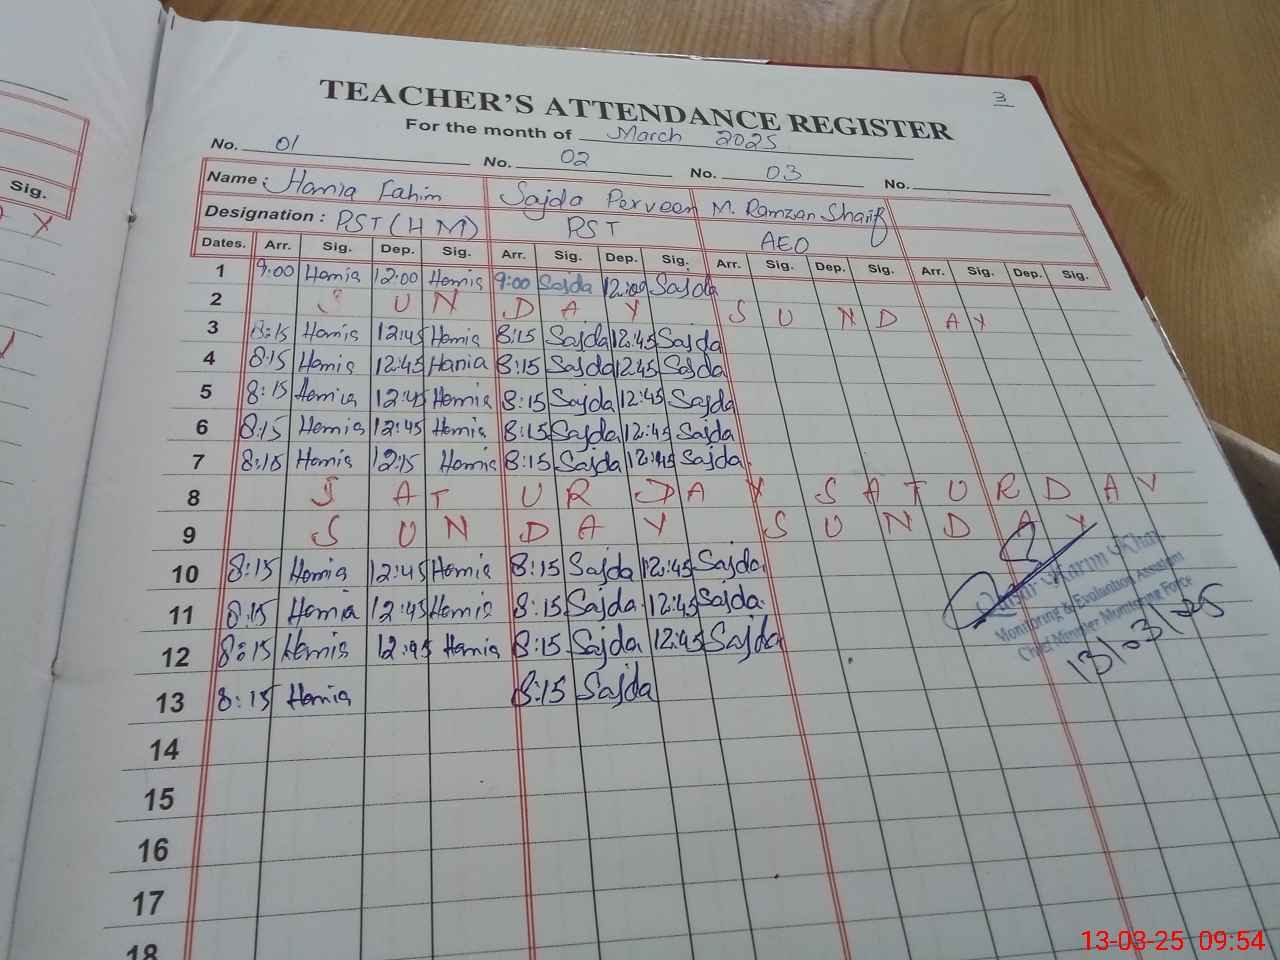 3
TEACHER'S ATTENDANCE REGISTER
For the month of March 2025
No. 01 No. 02 No. 03 No.
Name: Hamia Fahim Sajda Perveen M. Ramzan Sharif
Designation: PST (HM) PST AEO
Dates. Arr. Sig. Dep. Sig. Arr. Sig. Dep. Sig. Arr. Sig. Dep. Sig. Arr. Sig. Dep. Sig.
1 9:00 Hamia 12:00 Hamia 9:00 Sajda 12:00 Sajda
2 S U N D A Y S U N D A Y
3 8:15 Hamia 12:45 Hamia 8:15 Sajda 12:45 Sajda
4 8:15 Hamia 12:45 Hania 8:15 Sajda 12:45 Sajda
5 8:15 Hamia 12:45 Hamia 8:15 Sajda 12:45 Sajda
6 8:15 Hamia 12:45 Hamia 8:15 Sajda 12:45 Sajda
7 8:15 Hamia 12:15 Hamia 8:15 Sajda 12:45 Sajda
8 S A T U R D A Y S A T U R D A Y
9 S U N D A Y S U N D A Y
10 8:15 Hamia 12:45 Hamia 8:15 Sajda 12:45 Sajda
11 8:15 Hamia 12:45 Hamia 8:15 Sajda 12:45 Sajda
12 8:15 Hamia 12:45 Hamia 8:15 Sajda 12:45 Sajda
13 8:15 Hamia 8:15 Sajda
Khan
Monitoring & Evaluation Assistant
Chief Minister Monitoring Force
13/03/25
14
15
16
17
18
Sig.
Y
13-03-25 09:54